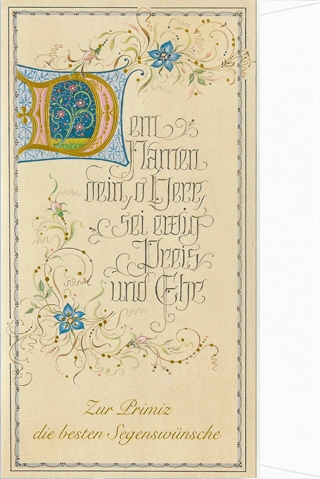 Dem
Namen
dein, o Herr,
sei ewig
Preis
und Ehr
Zur Primiz
die besten Segenswünsche